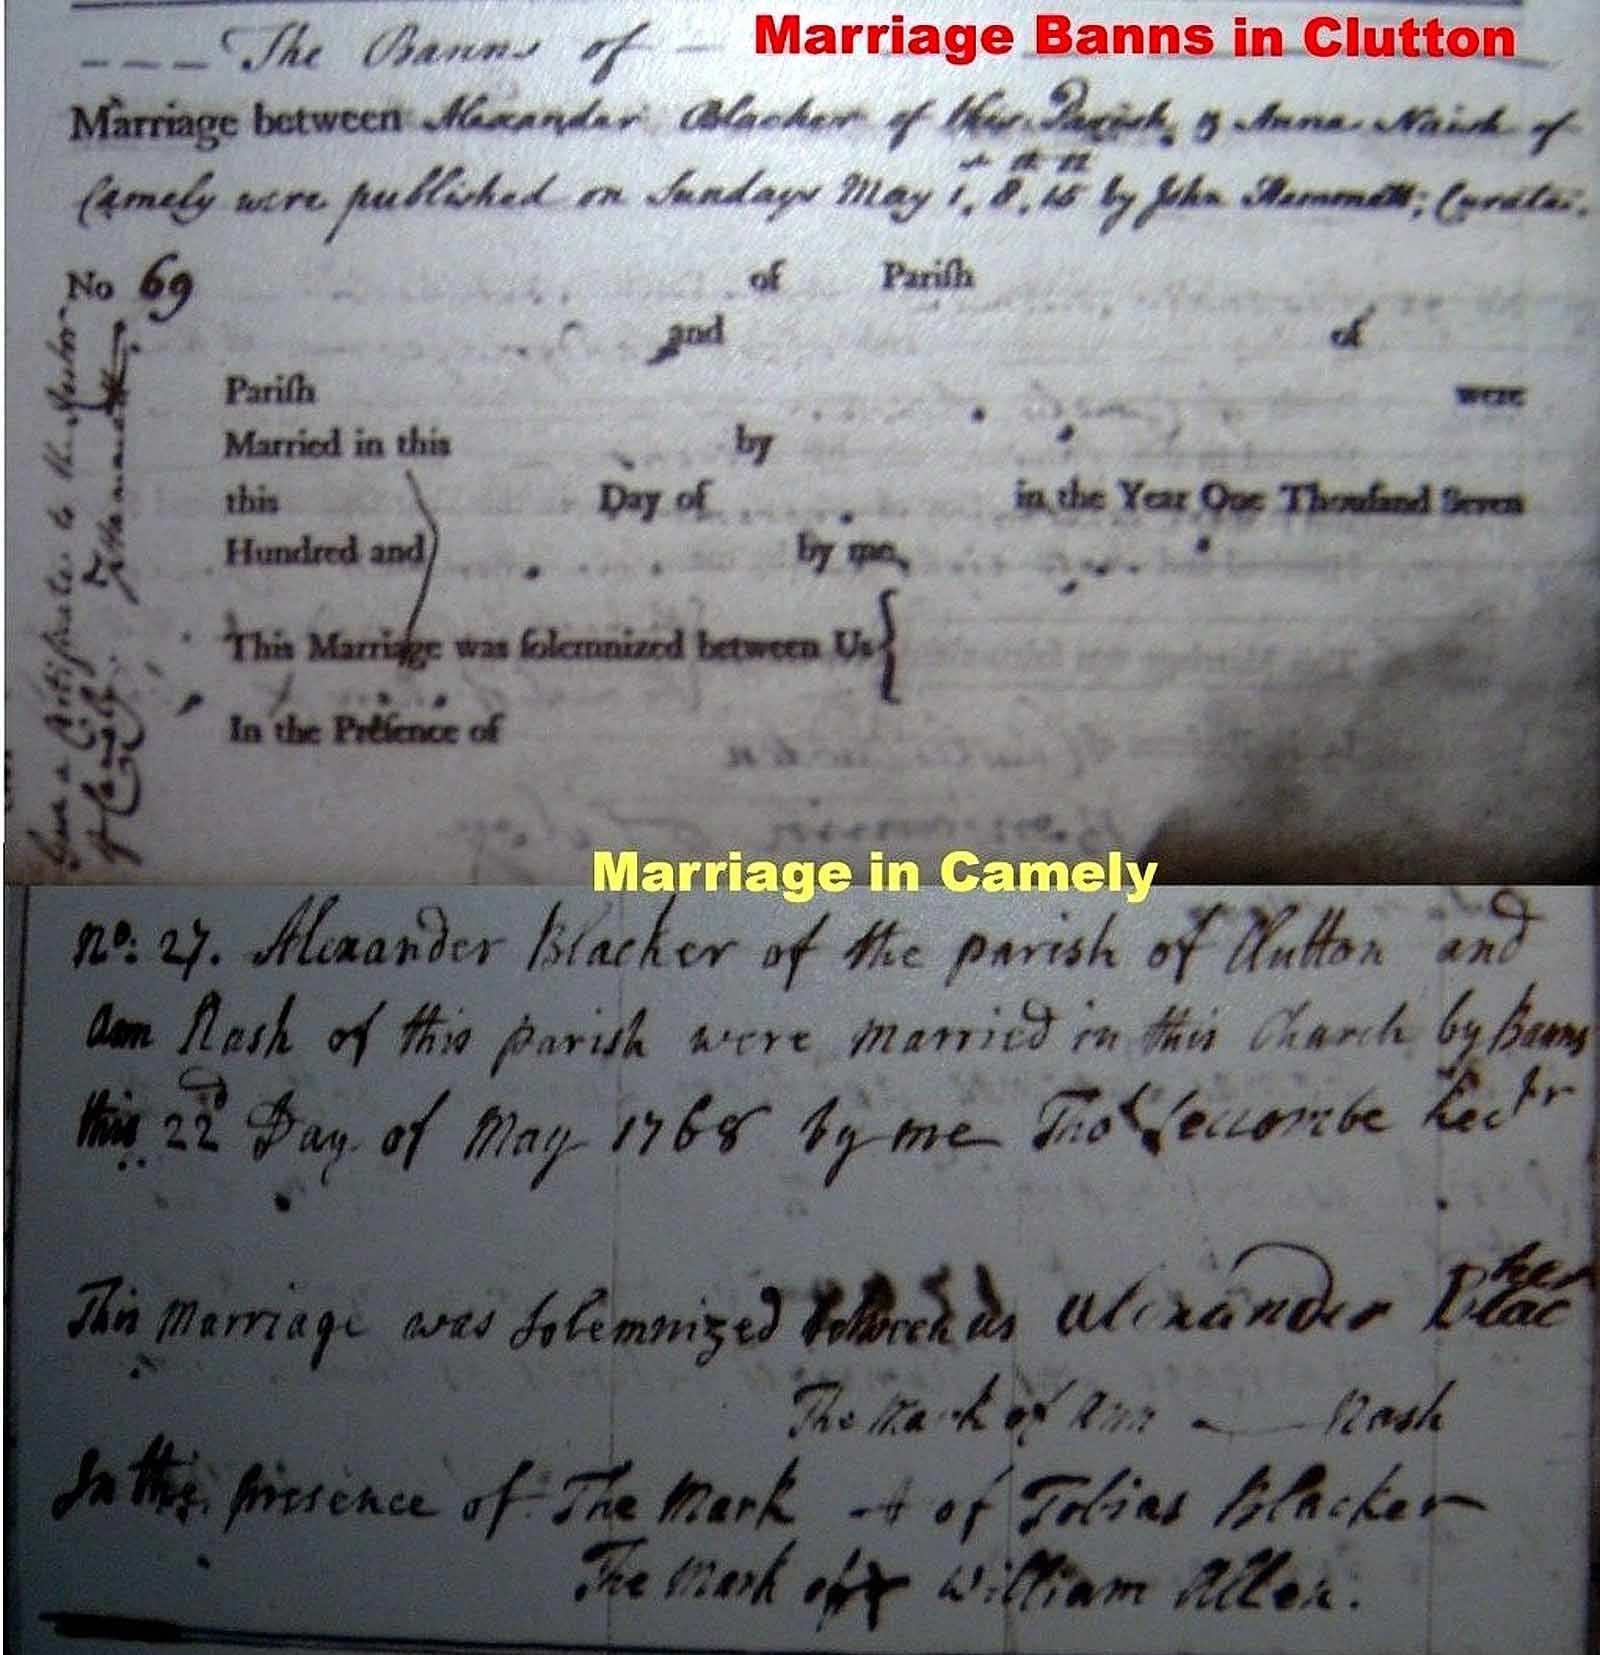 Marriage Banns in Clutton
The Banns of
Marriage between Alexander Blacker of this Parish, & Anna Naish of
Camely were published on Sundays May 1, 8, 15 by John Hemmett; Curate.
No 69
of Pariſh
and of
Pariſh were
Married in this by
this Day of in the Year One Thouſand Seven
Hundred and by me,
This Marriage was ſolemnized between Us
In the Preſence of
a Certificate to the
of Camely
Marriage in Camely
No: 27. Alexander Blacker of the parish of Clutton and
Ann Nash of this parish were Married in this Church by Banns
this 22d Day of May 1768 by me Thos Rectr
This Marriage was Solemnized between us Alexander Blacker
The Mark of Ann Nash
In the presence of The Mark + of Tobias Blacker
The Mark of William Allen.